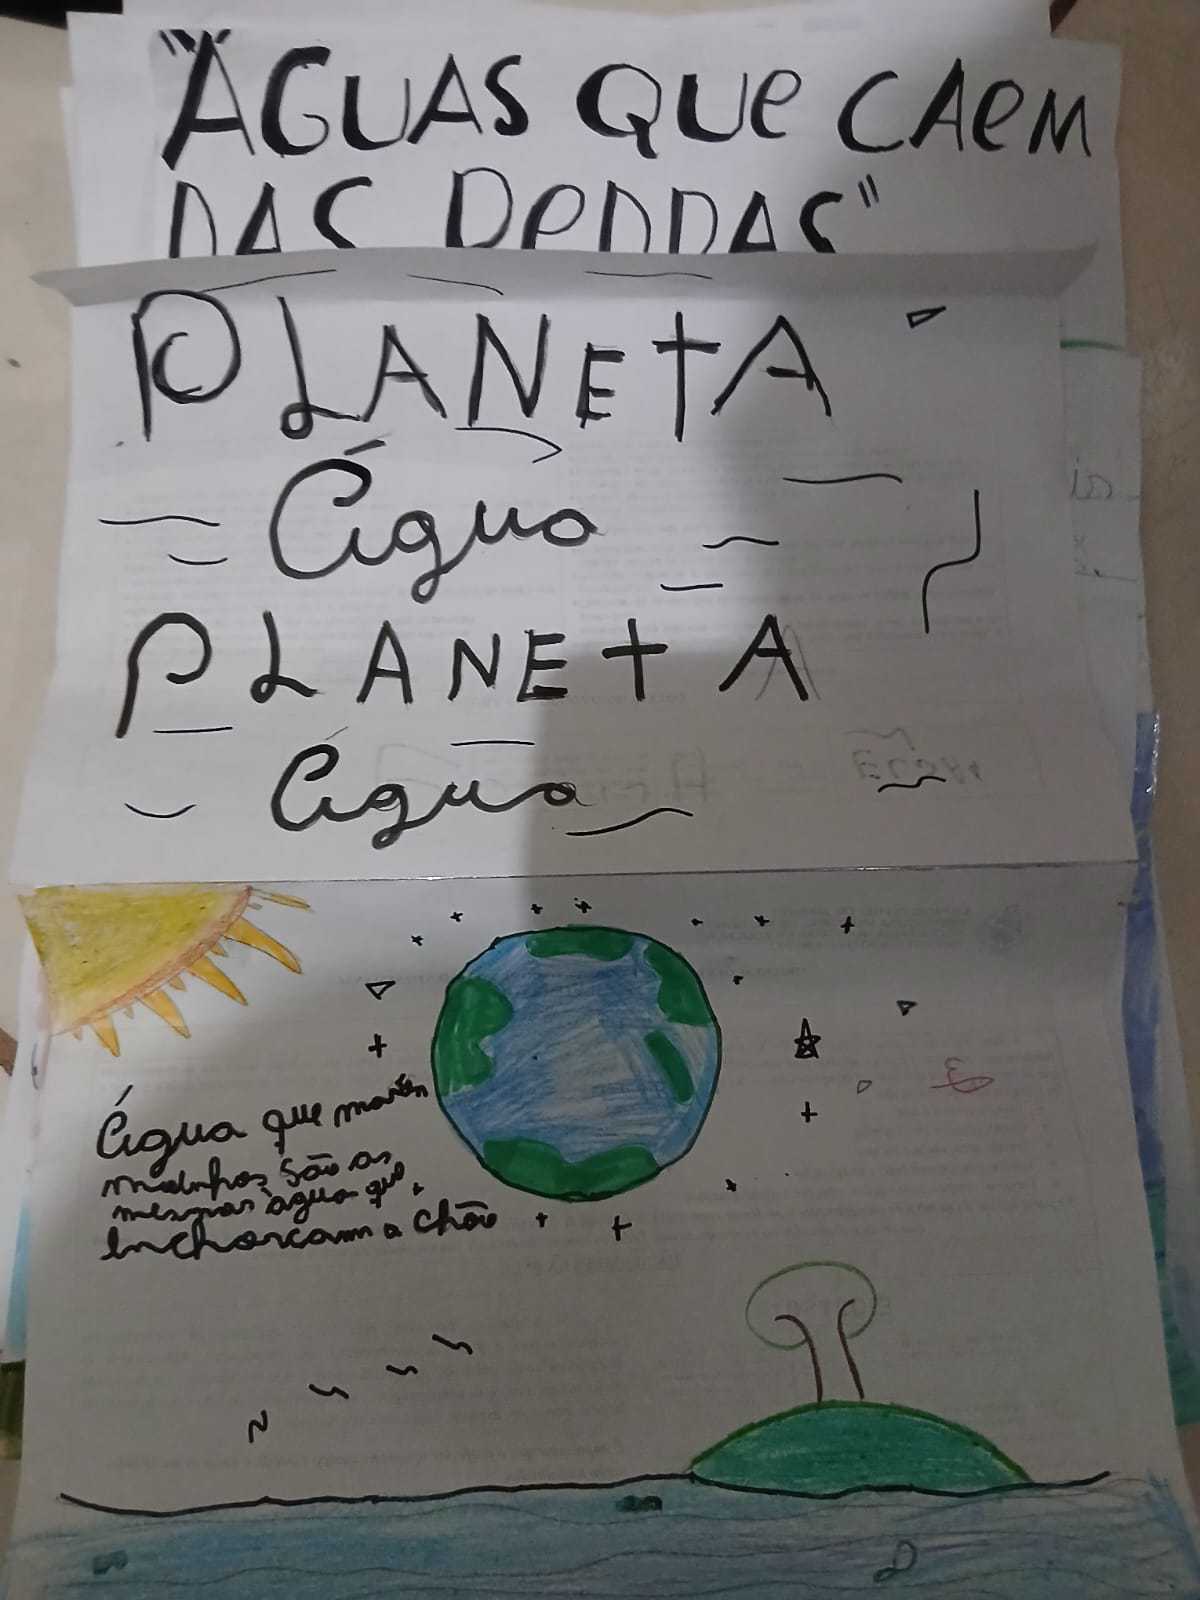 "ÁGUAS QUE CAEM
DAS PEDRAS"
PLANETA
Água
PLANETA
Água
Água que movem
moinhos são as
mesmas água que
inchorcam o chão